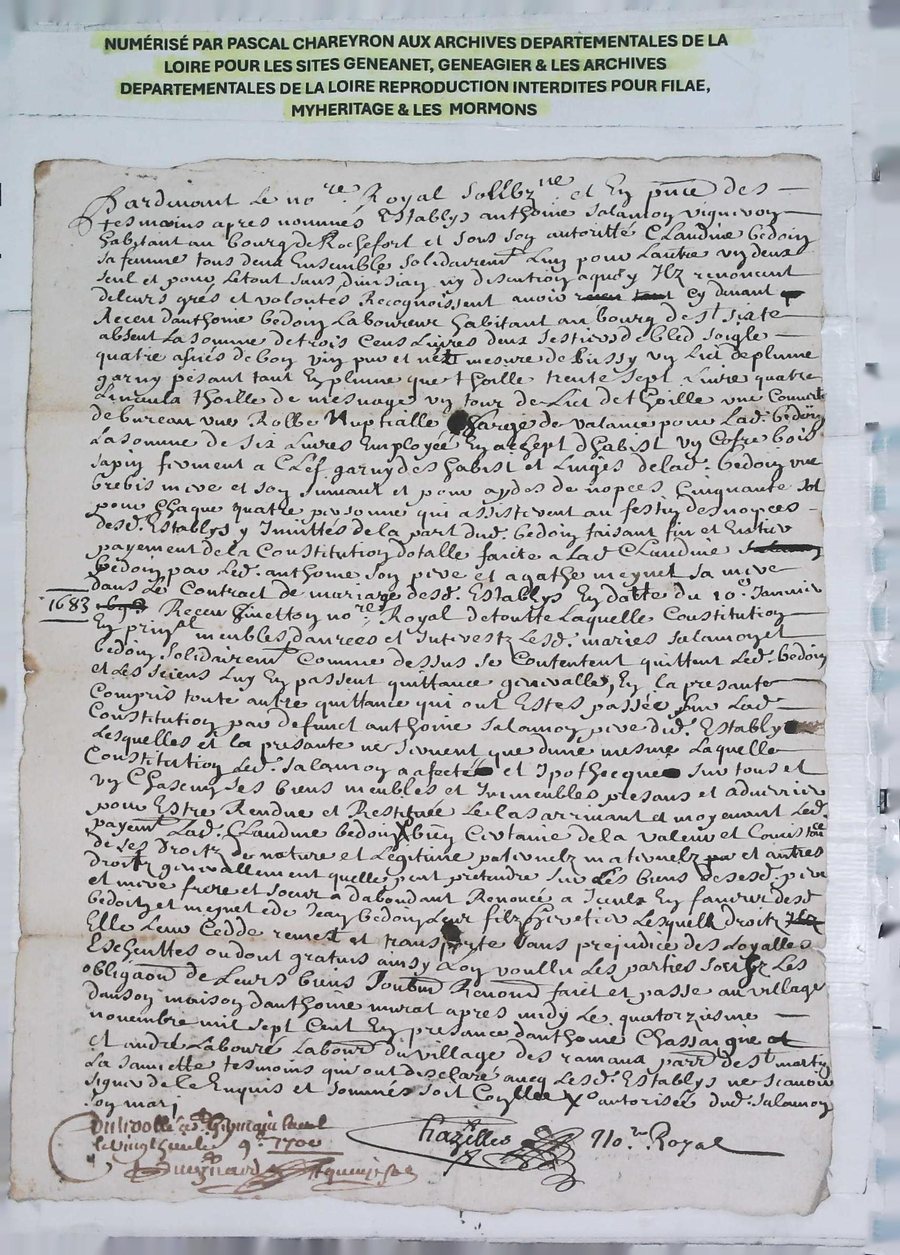 NUMÉRISÉ PAR PASCAL CHAREYRON AUX ARCHIVES DEPARTEMENTALES DE LA
LOIRE POUR LES SITES GENEANET, GENEAGIER & LES ARCHIVES
DEPARTEMENTALES DE LA LOIRE REPRODUCTION INTERDITES POUR FILAE,
MYHERITAGE & LES MORMONS
Pardevant Le no.re Royal et En pnce des
tesmoins apres nommés Establys anthoine Salamon vigneron
habitant au bourg de Rochefort et sous son autoritté Claudine bedoin
sa femme tous deux Ensemble solidairemt Lun pour Lautre un deux
seul et pour Letout sans division ny discution aquoy Ilz renoncent
deleurs grés et volontés Recognoissent avoir cy devant
Receu danthoine bedoin Laboureur habitant au bourg de st
absent La somme de trois Cens Livres deux sestiers de bled soigle
quatre asnés de bon vin pur et net mesure de Bussy un Lict de plume
garny pesant tant En plume que thoille trente sept Livre quatre
Linceula thoille de mesnage un tour de Lict de thoille une Couverte
de bureau une Robbe Nuptialle de valance pour Lad. bedoin
La somme de six Livres Employée En achept dhabist un Cofre bois
sapin ferment a Clef garny des habist et Linges delad. bedoin une
brebis mere et son suivant et pour aydes de nopces Cinquante sol
pour Chaque quatre personne qui assisterent au festin des nopces
desd. Establys y Invittés de la part dud. bedoin faisant fin et Entier
payement de la Constitution dotalle faicte a Lad. Claudine
bedoin par Led. anthoine son pere et agathe meynet sa mere
dans Le Contract de mariage desd. Establys En datte du 10.e Janvier
1683 Receu no.re Royal de toutte Laquelle Constitution
En prinpal meubles danrees et Interestz Lesd. mariés Salamon et
bedoin solidairemt Comme dessus se Contentent quittent Led. bedoin
et Les siens Luy En passent quittance generalle, En la presante
Compris toute autre quittance qui ont Estes passée sur Lad.
Constitution par defunct anthoine Salamon pere dud. Estably
Lesquelles et la presante ne servent que dune mesme Laquelle
Constitution Led. Salamon a afecté et Ipothecque sur tous et
un Chascung ses biens meubles et Immeubles presans et advenir
pour Estre Rendue et Restituée Le Cas arrivant et moyenant Led.
payemt Lad. Claudine bedoin X bien Certanie de la valeur et Consistance
de ses droitz de nature et Legitime paternelz maternelz et autres
droitz generallement quelle peut pretendre sur Les biens desesd. pere
et mere frere et soeur a dabondant Renoncé a Iceulx En faveur desd
bedoin et meynet et de Jean bedoin Leur filz heretier Lesquelz droitz
Elle Leur Cedde remest et transporte sans prejudice des Loyalles
Escheuttes ou dont gratuis ainsy Lon voullu Les parties Les
obligaon de Leurs biens faict et passe au village
dans maison danthoine murat apres midy Le quatorziesme
novembre mil sept Cent En presance danthoine Chassaigne
et andre Labouré Labour du village des ramaux parr. de st martin
La Sauvette tesmoins qui ont desclaré avec Lesd. Establys ne scavoir
signer de ce Enquis et sommés soit Conllé X autorisée dud. Salamon
son mary
9.e 1700
Chazelles no.re Royal